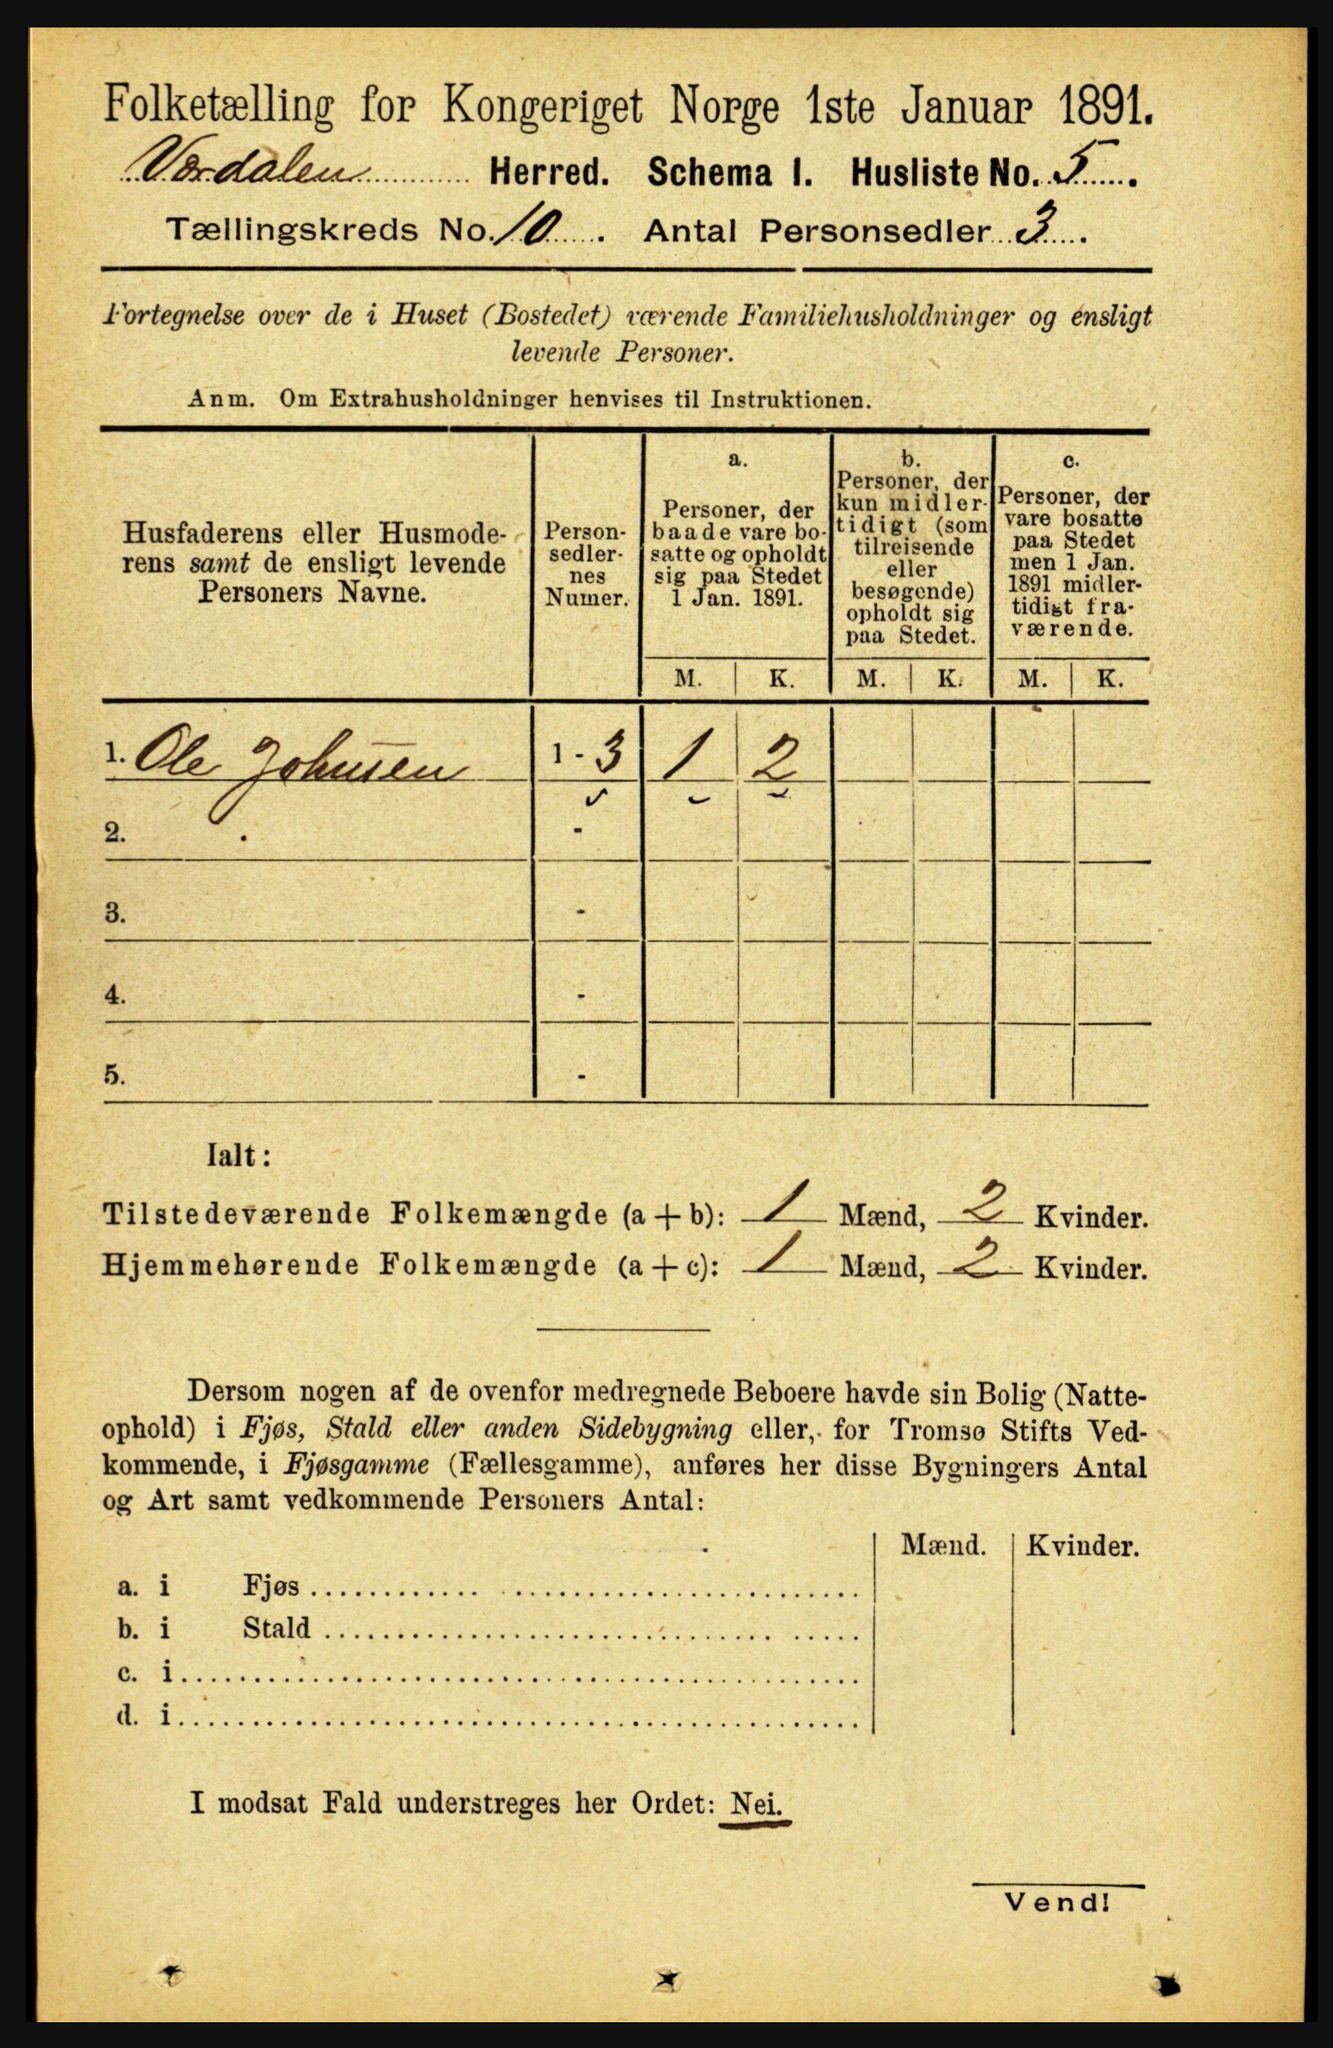 Folketælling for Kongeriget Norge 1ste Januar 1891.
Værdalen Herred. Schema I. Husliste No. 5.
Tællingskreds No. 10. Antal Personsedler 3.
Fortegnelse over de i Huset (Bostedet) værende Familiehusholdninger og ensligt
levende Personer.
Anm. Om Extrahusholdninger henvises til Instruktionen.
Husfaderens eller Husmode-
rens samt de ensligt levende
Personers Navne.
Person-
sedler-
nes
Numer.
a.
Personer, der
baade vare bo-
satte og opholdt
sig paa Stedet
1 Jan. 1891.
b.
Personer, der
kun midler-
tidigt (som
tilreisende
eller
besøgende)
opholdt sig
paa Stedet.
c.
Personer, der
vare bosatte
paa Stedet
men 1 Jan.
1891 midler-
tidigt fra-
værende.
M. K. M. K. M. K.
1. Ole Johnsen 1 - 3 1 2
2. -
3. -
4. -
5. -
Ialt:
Tilstedeværende Folkemængde (a + b): 1 Mænd, 2 Kvinder.
Hjemmehørende Folkemængde (a + c): 1 Mænd, 2 Kvinder.
Dersom nogen af de ovenfor medregnede Beboere havde sin Bolig (Natte-
ophold) i Fjøs, Stald eller anden Sidebygning eller, for Tromsø Stifts Ved-
kommende, i Fjøsgamme (Fællesgamme), anføres her disse Bygningers Antal
og Art samt vedkommende Personers Antal:
Mænd. Kvinder.
a. i Fjøs
b. i Stald
c. i
d. i
I modsat Fald understreges her Ordet: Nei.
Vend!